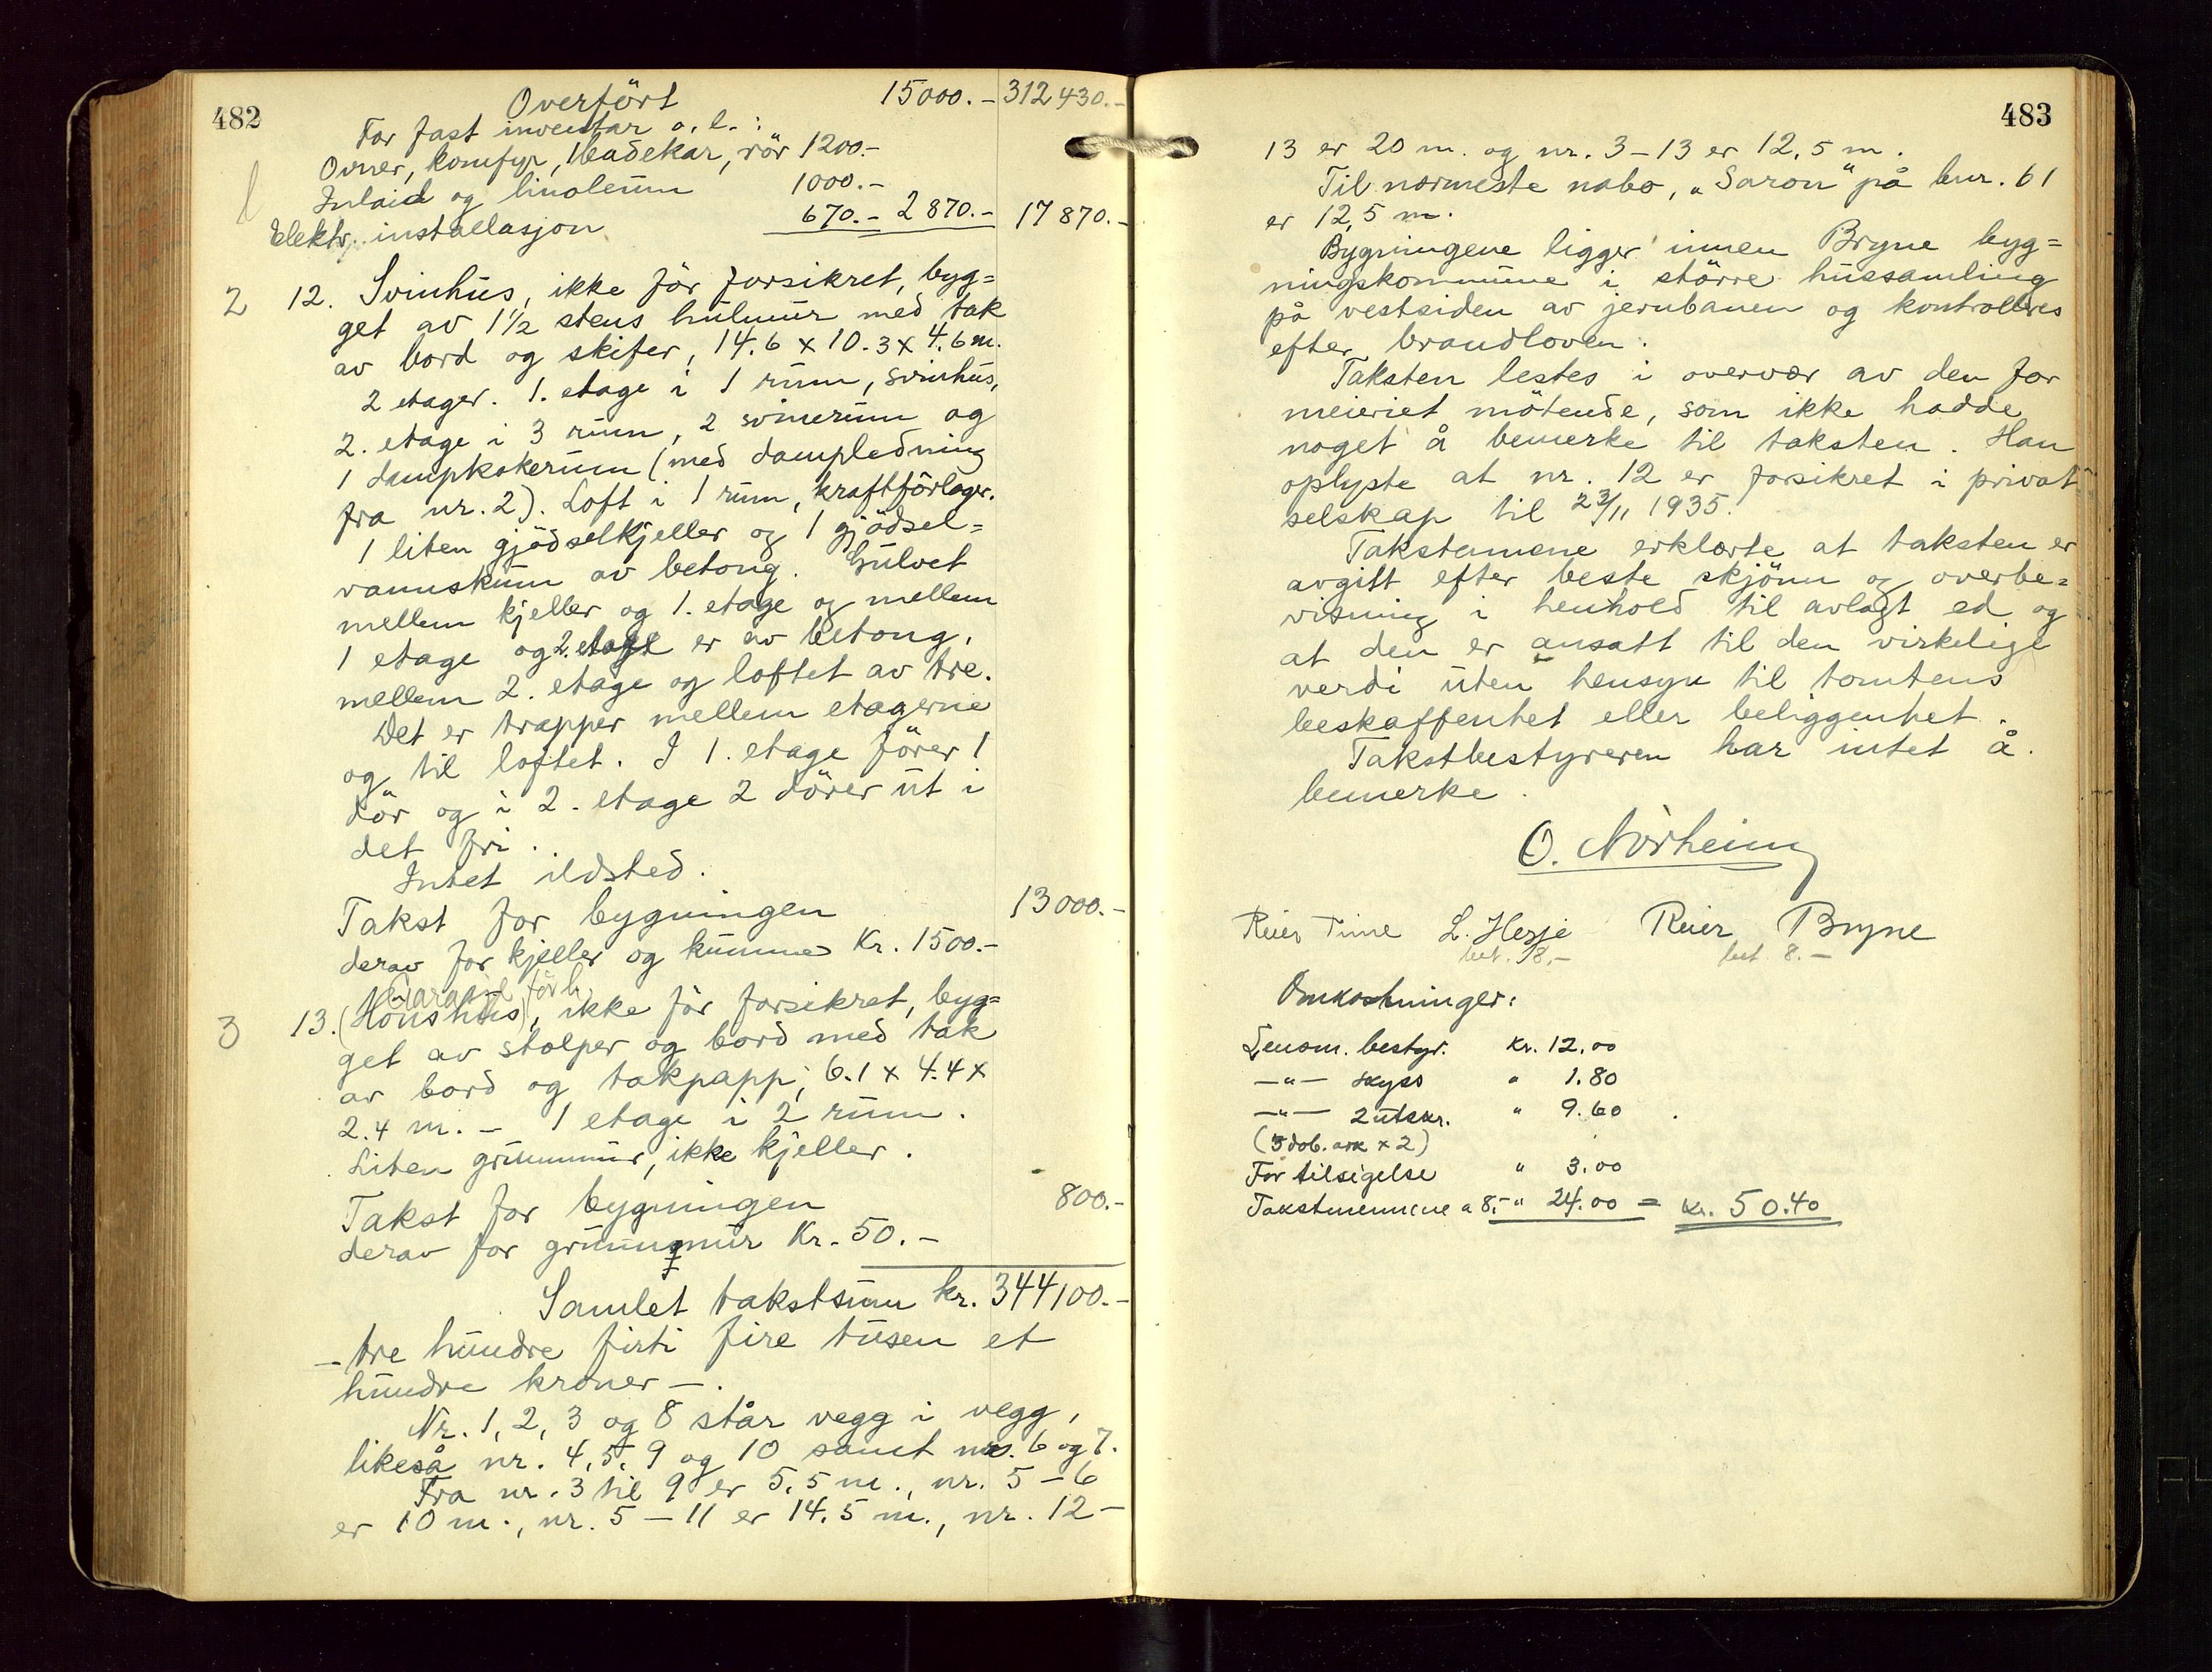 482
Overfört 15000.- 312430.-
For fast inventar o.l.:
Ovner, komfyr, 1 badekar, rör 1200.-
Inlaid og linoleum 1000.-
Elektr. installasjon 670.- 2870.- 17870.-
2 12. Svinhus, ikke för forsikret, byg=
get av 1½ stens hulmur med tak
av bord og skifer, 14.6 x 10.3 x 4.6 m.
2 etager. 1. etage i 1 rum, svinhus,
2. etage i 3 rum, 2 svinerum og
1 dampkokerum (med dampledning
fra nr. 2). Loft i 1 rum, kraftfôrlager.
1 liten gjödselkjeller og 1 gjödsel=
vannskum av betong. Gulvet
mellem kjeller og 1. etage og mellem
1 etage og 2. etage er av betong,
mellem 2. etage og loftet av tre.
Det er trapper mellem etagerne
og til loftet. I 1. etage förer 1
dör og i 2. etage 2 dörer ut i
det fri.
Intet ildsted.
Takst for bygningen 13000.-
derav for kjeller og kumme Kr. 1500.-
Garasje
3 13. (Hönshus), ikke för forsikret, byg=
get av stolper og bord med tak
av bord og takpapp, 6.1 x 4.4 x
2.4 m. - 1 etage i 2 rum.
Liten grunnmur, ikke kjeller.
Takst for bygningen 800.-
derav for grunnmur Kr. 50.-
Samlet takstsum kr. 344100.-
- tre hundre firti fire tusen et
hundre kroner -.
Nr. 1, 2, 3 og 8 står vegg i vegg,
likeså nr. 4, 5, 9 og 10 samt nrs. 6 og 7.
Fra nr. 3 til 9 er 5,5 m., nr. 5 - 6
er 10 m., nr. 5 - 11 er 14.5 m., nr. 12 -
483
13 er 20 m. og nr. 3 - 13 er 12,5 m.
Til nærmeste nabo, „Saron" på bnr. 61
er 12,5 m.
Bygningene ligger innen Bryne byg=
ningskommune i större hussamling
på vestsiden av jernbanen og kontrolleres
efter brandloven.
Taksten lestes i overvær av den for
meieriet mötende, som ikke hadde
noget å bemerke til taksten. Han
oplyste at nr. 12 er forsikret i privat
selskap til 23/11 1935.
Takstmenene erklærte at taksten er
avgitt efter beste skjönn og overbe=
visning i henhold til avlagt ed og
at den er ansatt til den virkelige
verdi uten hensyn til tomtens
beskaffenhet eller beliggenhet.
Takstbestyreren har intet å
bemerke.
O. Norheim
Reier Time L. Herje Reier Bryne
bet. 8.- bet. 8.-
Omkostninger:
Lensm. bestyr. Kr. 12.00
-"- skyss " 1.80
-"- 2 utskr. " 9.60
(3 dob. ark x 2)
For tilsigelse " 3.00
Takstmennene a 8,- " 24.00 = kr. 50.40